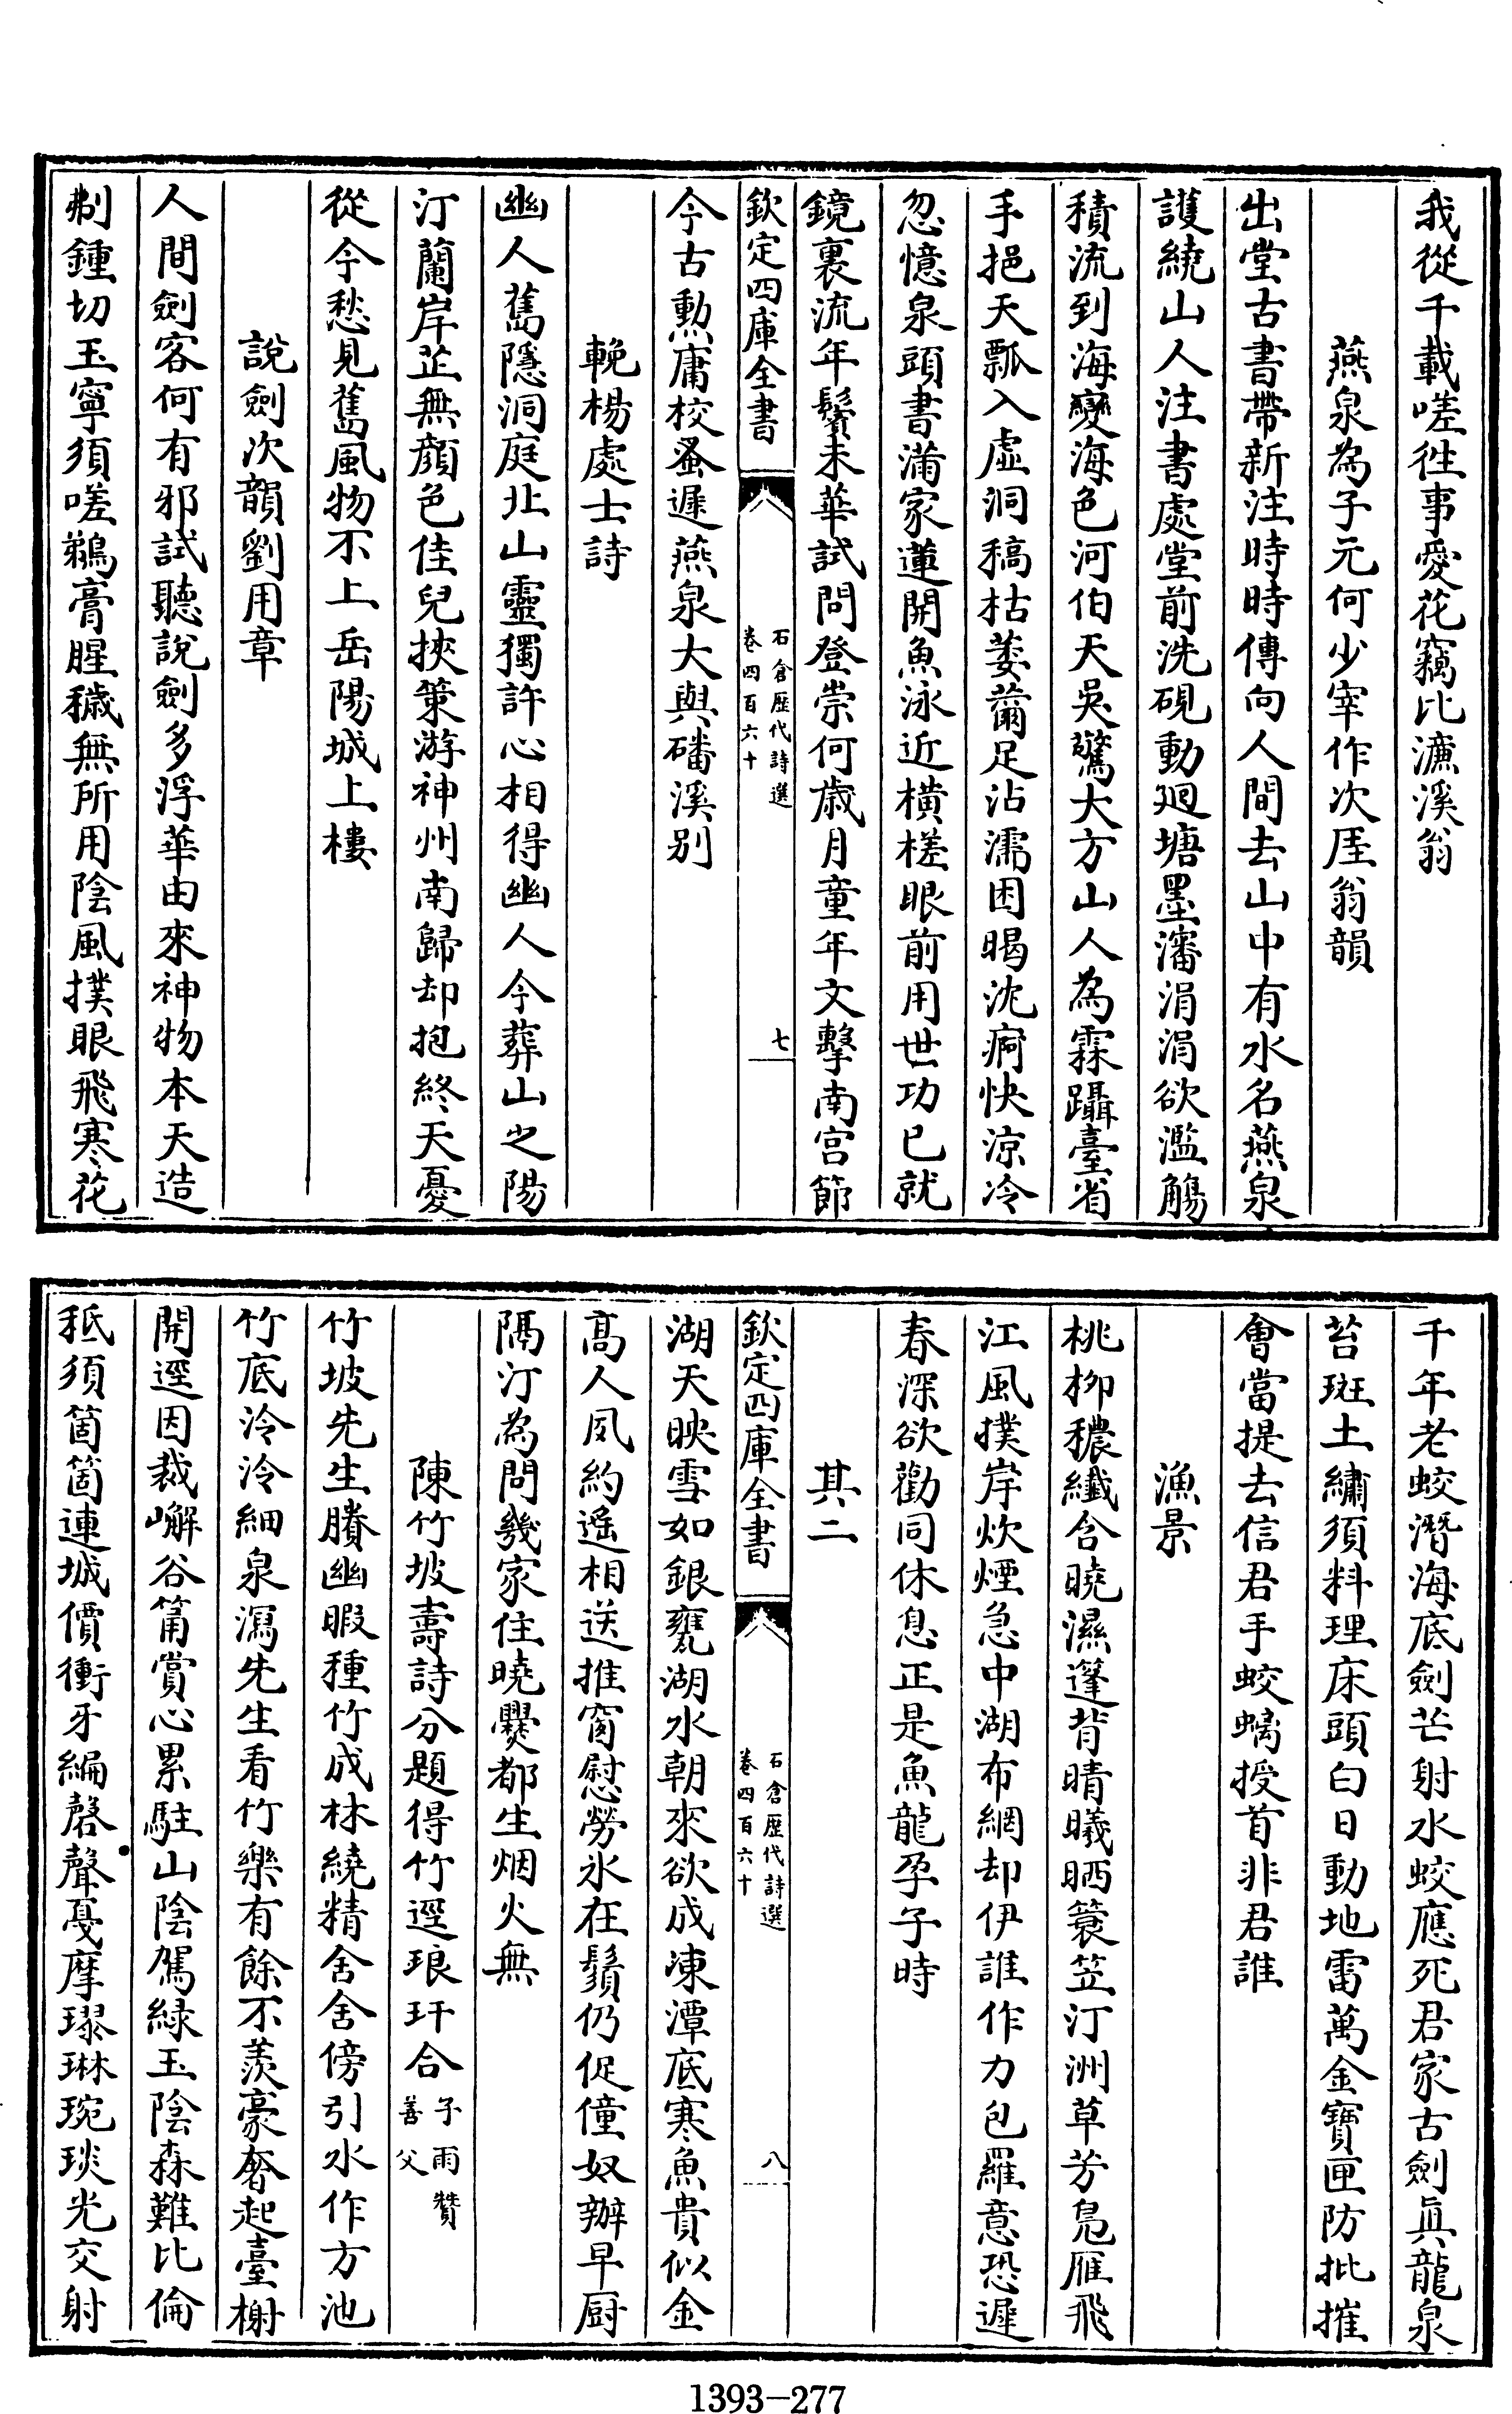 我從千載嗟徃事愛花竊比濂溪翁
燕泉為子元何少宰作次厓翁韻
出堂古書帶新注時時傳向人間去山中有水名燕泉
護繞山人注書處堂前洗硯動廻塘墨瀋涓涓欲濫觴
積流到海變海色河伯天吳驚大方山人為霖躡臺省
手挹天瓢入虛洞稿枯萎薾足沾濡困暍沈痾快涼冷
忽憶泉頭書滿家蓮開魚泳近橫槎眼前用世功已就
鏡裏流年鬢未華試問登崇何歲月童年文擊南宫節
欽定四庫全書
石倉歷代詩選
卷四百六十
七
今古勲庸校蚤遲燕泉大與磻溪别
輓楊處士詩
幽人舊隱洞庭北山靈獨許心相得幽人今葬山之陽
汀蘭岸芷無顔色佳兒挾策游神州南歸却抱終天憂
從今愁見舊風物不上岳陽城上樓
説劍次韻劉用章
人間劍客何有邪試聽説劍多浮華由來神物本天造
剸鍾切玉寧須嗟鵜膏腥穢無所用陰風撲眼飛寒花
千年老蛟潛海底劍芒射水蛟應死君家古劍眞龍泉
苔斑土繡須料理床頭白日動地雷萬金寶匣防批摧
會當提去信君手蛟螭授首非君誰
漁景
桃柳穠纎含曉濕篷背晴曦晒簑笠汀洲草芳鳬雁飛
江風撲岸炊煙急中湖布網却伊誰作力包羅意恐遲
春深欲勸同休息正是魚龍孕子時
其二
欽定四庫全書
石倉歷代詩選
卷四百六十
八
湖天映雪如銀甕湖水朝來欲成凍潭底寒魚貴似金
髙人夙約遥相送推窗慰勞氷在鬚仍促僮奴辦早厨
隔汀為問幾家住曉爨都生烟火無
陳竹坡壽詩分題得竹逕琅玕合子雨贊善父
竹坡先生賸幽暇種竹成林繞精舍舍傍引水作方池
竹底泠泠細泉瀉先生看竹樂有餘不羨豪奢起臺榭
開逕因裁嶰谷筩賞心累駐山陰駕緑玉陰森難比倫
秪須箇箇連城價衝牙編磬聲戞摩璆琳琬琰光交射
1393-277